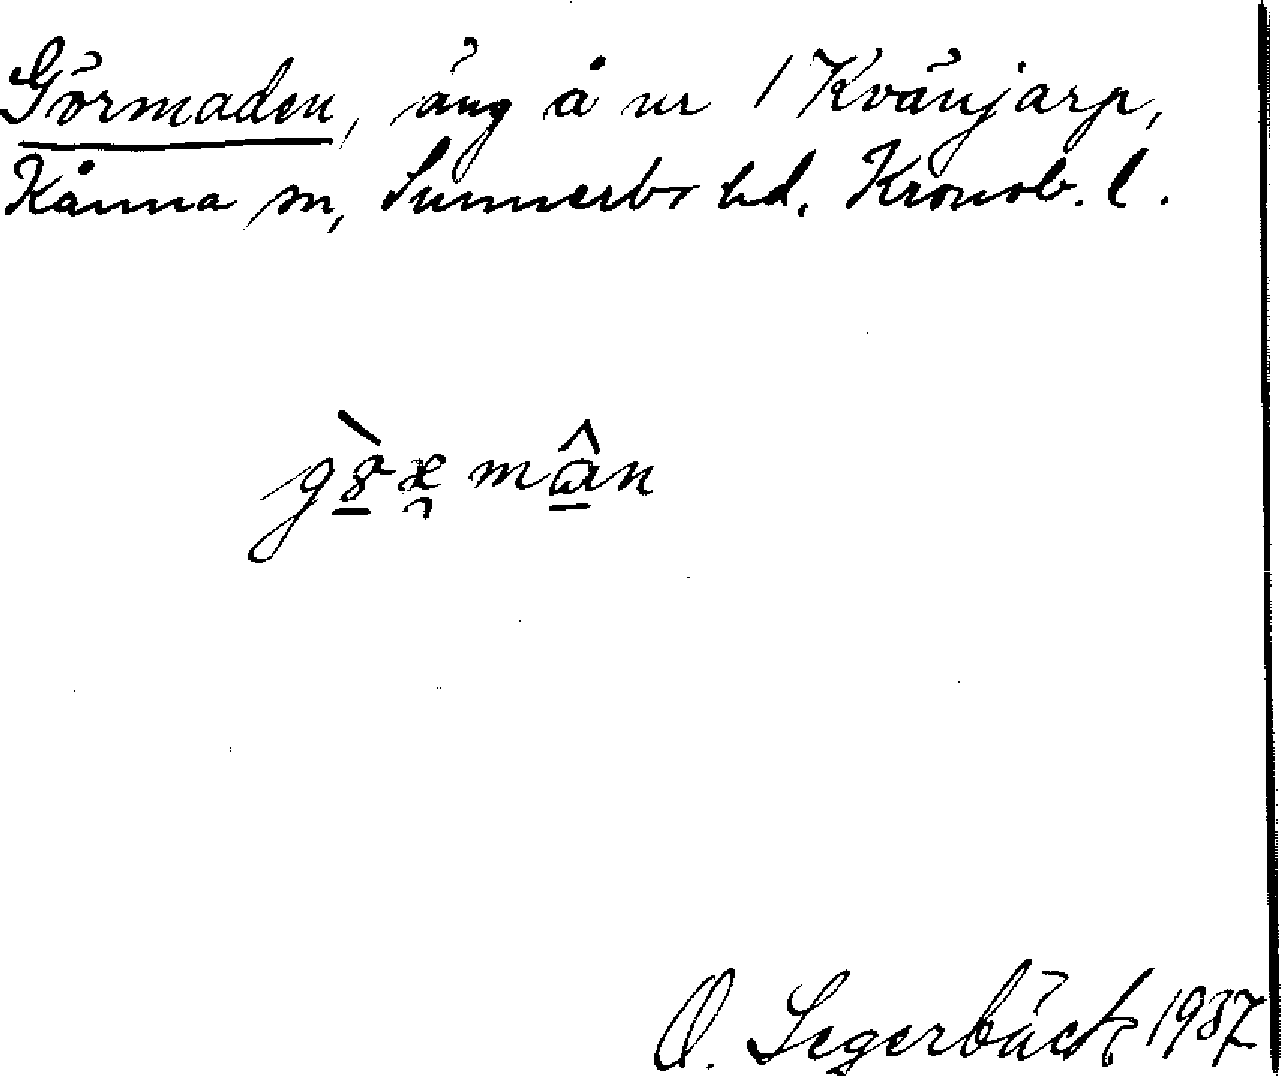 Görmaden, äng å nr 1 Kvänjarp,
Kånna sn, Sunnerbo hd. Kronob. l.
O. Segerbäck 1937